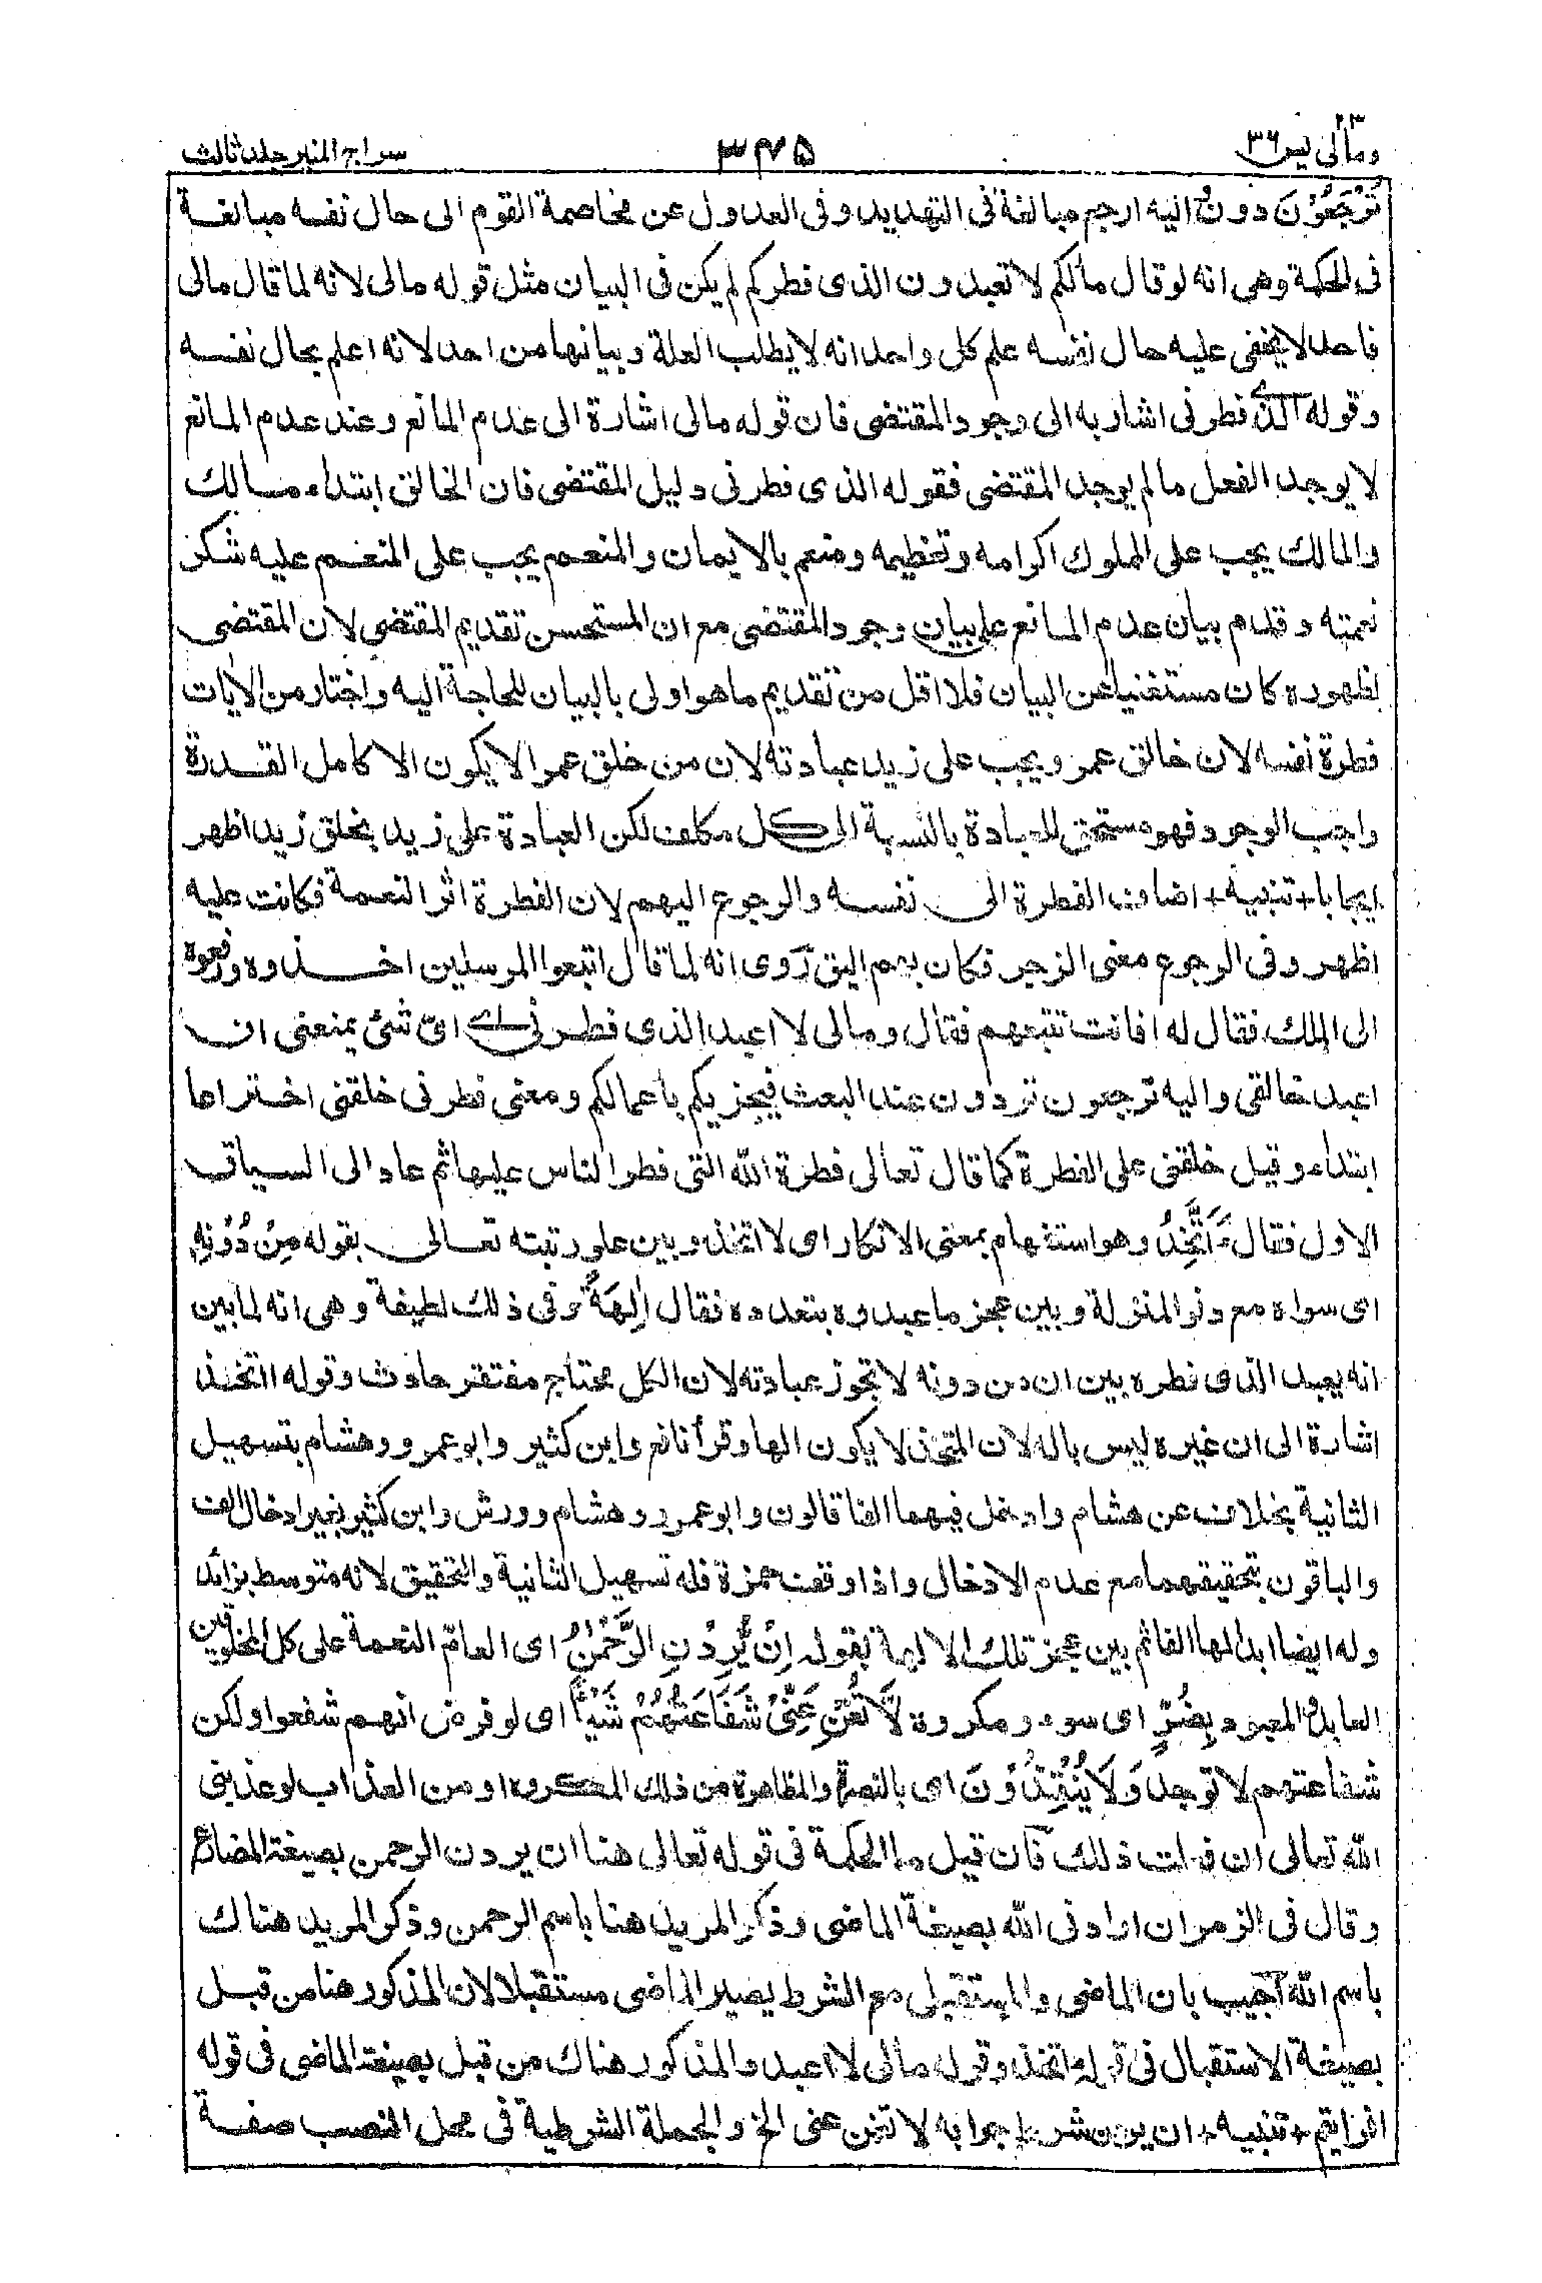 ومالى ٢٣ يس ٣٦
٣٧٥
سراج المنير جلد ثالث
تُرْجَعُوْنَ دون اليه ارجع مبالغة فى التهديد وفى العدول عن مخاصمة القوم الى حال نفسه مبالغة
فى الحكمة وهى انه لو قال مالكم لا تعبدون الذى فطركم لم يكن فى البيان مثل قوله مالى لانه لما قال مالى
فاحد لا يخفى عليه حال نفسه علم كل واحد انه لا يطلب العلة وبيانها من احد لانه اعلم بحال نفسه
وقوله الذى فطرنى اشار به الى وجود المقتضى فان قوله مالى اشارة الى عدم المانع وعند عدم المانع
لا يوجد الفعل ما لم يوجد المقتضى فقوله الذى فطرنى دليل المقتضى فان الخالق ابتداء مالك
والمالك يجب على المملوك اكرامه وتعظيمه ومنعم بالايمان والمنعم يجب على المنعم عليه شكر
نعمته وقدم بيان عدم المانع على بيان وجود المقتضى مع ان المستحسن تقديم المقتضى لان المقتضى
لظهوره كان مستغنيا عن البيان فلا اقل من تقديم ما هو اولى بالبيان للحاجة اليه واختار من الايات
فطرة نفسه لان خالق عمرو يجب على زيد عبادته لان من خلق عمرا لا يكون الا كامل القدرة
واجب الوجود فهو مستحق للعبادة بالنسبة الى كل مكلف لكن العبادة على زيد بخلق زيد اظهر
ايجابا + تنبيه + اضاف الفطرة الى نفسه والرجوع اليهم لان الفطرة اثر النعمة فكانت عليه
اظهر وفى الرجوع معنى الزجر فكان بهم اليق روى انه لما قال اتبعوا المرسلين اخذوه ورفعوه
الى الملك فقال له افانت تتبعهم فقال ومالى لا اعبد الذى فطرنى اے اىّ شئ يمنعنى ان
اعبد خالقى واليه ترجعون تردون عند البعث فيجزيكم باعمالكم ومعنى فطرنى خلقنى اختراعا
ابتداء وقيل خلقنى على الفطرة كما قال تعالى فطرة الله التى فطر الناس عليها ثم عاد الى السياق
الاول فقال ءَاَتَّخِذُ وهو استفهام بمعنى الانكار اى لا اتخذ وبين علو رتبته تعالى بقوله مِنْ دُوْنِهٖ
اى سواه مع دنو المنزلة وبين عجز ما عبدوه بتعدده فقال اٰلِهَةً وفى ذلك لطيفة وهى انه لما بين
انه يعبد الذى فطره بين ان من دونه لا تجوز عبادته لان الكل محتاج مفتقر حادث وقوله ااتخذ
اشارة الى ان غيره ليس باله لان المتخذ لا يكون الها وقرأ نافع وابن كثير وابو عمرو وهشام بتسهيل
الثانية بخلاف عن هشام وادخل فيهما الفا قالون وابو عمرو وهشام وورش وابن كثير بغير ادخال الف
والباقون بتحقيقهما مع عدم الادخال واذا وقف حمزة فله تسهيل الثانية والتحقيق لانه متوسط بزائد
وله ايضا ابدالها الفا ثم بين عجز تلك الالهة بقوله اِنْ يُّرِدْنِ الرَّحْمٰنُ اى العام النعمة على كل المخلوقين
العابد والمعبود بِضُرٍّ اى سوء ومكروه لَّا تُغْنِ عَنِّىْ شَفَاعَتُهُمْ شَيْئًا اى لو فرض انهم شفعوا ولكن
شفاعتهم لا توجد وَلَا يُنْقِذُوْنَ اى بالنصرة والمظاهرة من ذلك المكروه او من العذاب لو عذبنى
الله تعالى ان فعلت ذلك فان قيل ما الحكمة فى قوله تعالى هنا ان يردن الرحمن بصيغة المضارع
وقال فى الزمر ان ارادنى الله بصيغة الماضى وذكر المريد هنا باسم الرحمن وذكر المريد هناك
باسم الله اجيب بان الماضى والمستقبل مع الشرط يصير الماضى مستقبلا لان المذكور هنا من قبل
بصيغة الاستقبال فى قوله ااتخذ وقوله مالى لا اعبد والمذكور هناك من قبل بصيغة الماضى فى قوله
افرايتم + تنبيه + ان يردن شرط جوابه لا تغن عنى الخ والجملة الشرطية فى محل النصب صفة